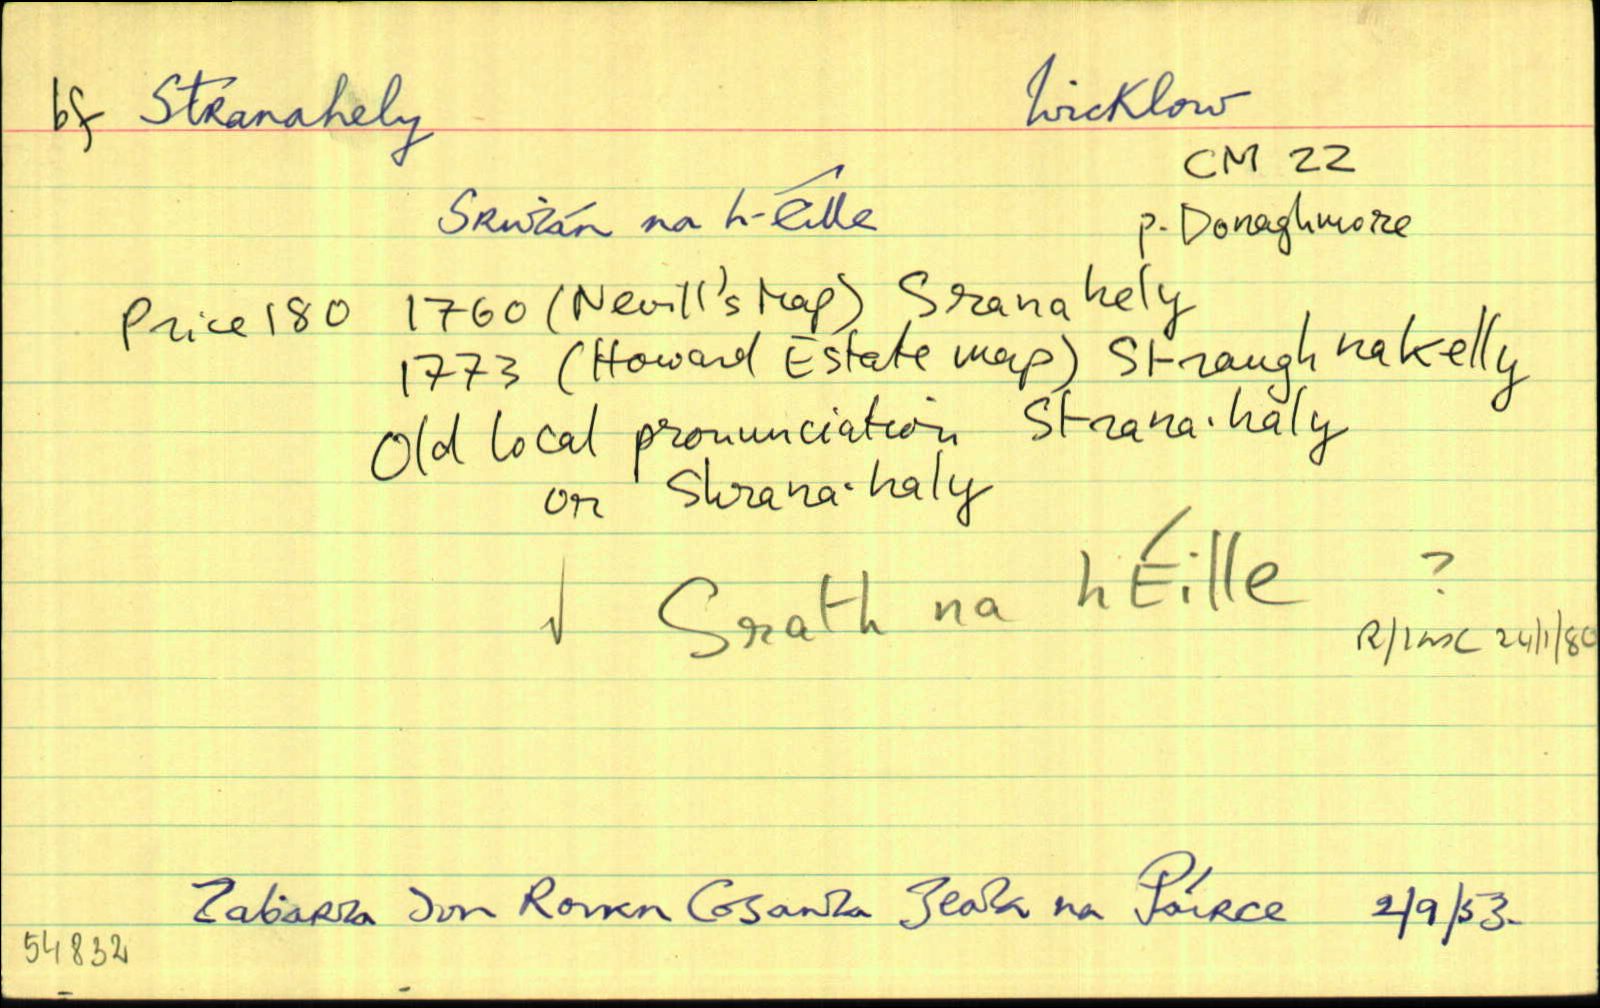 bf Stranahely Wicklow
CM 22
Sruthán na h-Éille
p. Donaghmore
Price 180 1760 (Nevill's Map) Sranahely
1773 (Howard Estate map) Straughnakelly
Old local pronunciation Strana·haly
or Shrana·haly
Srath na hÉille ?
24/1/80
Tabartha don Roinn Cosanta Geata na Páirce 2/9/53.
54832